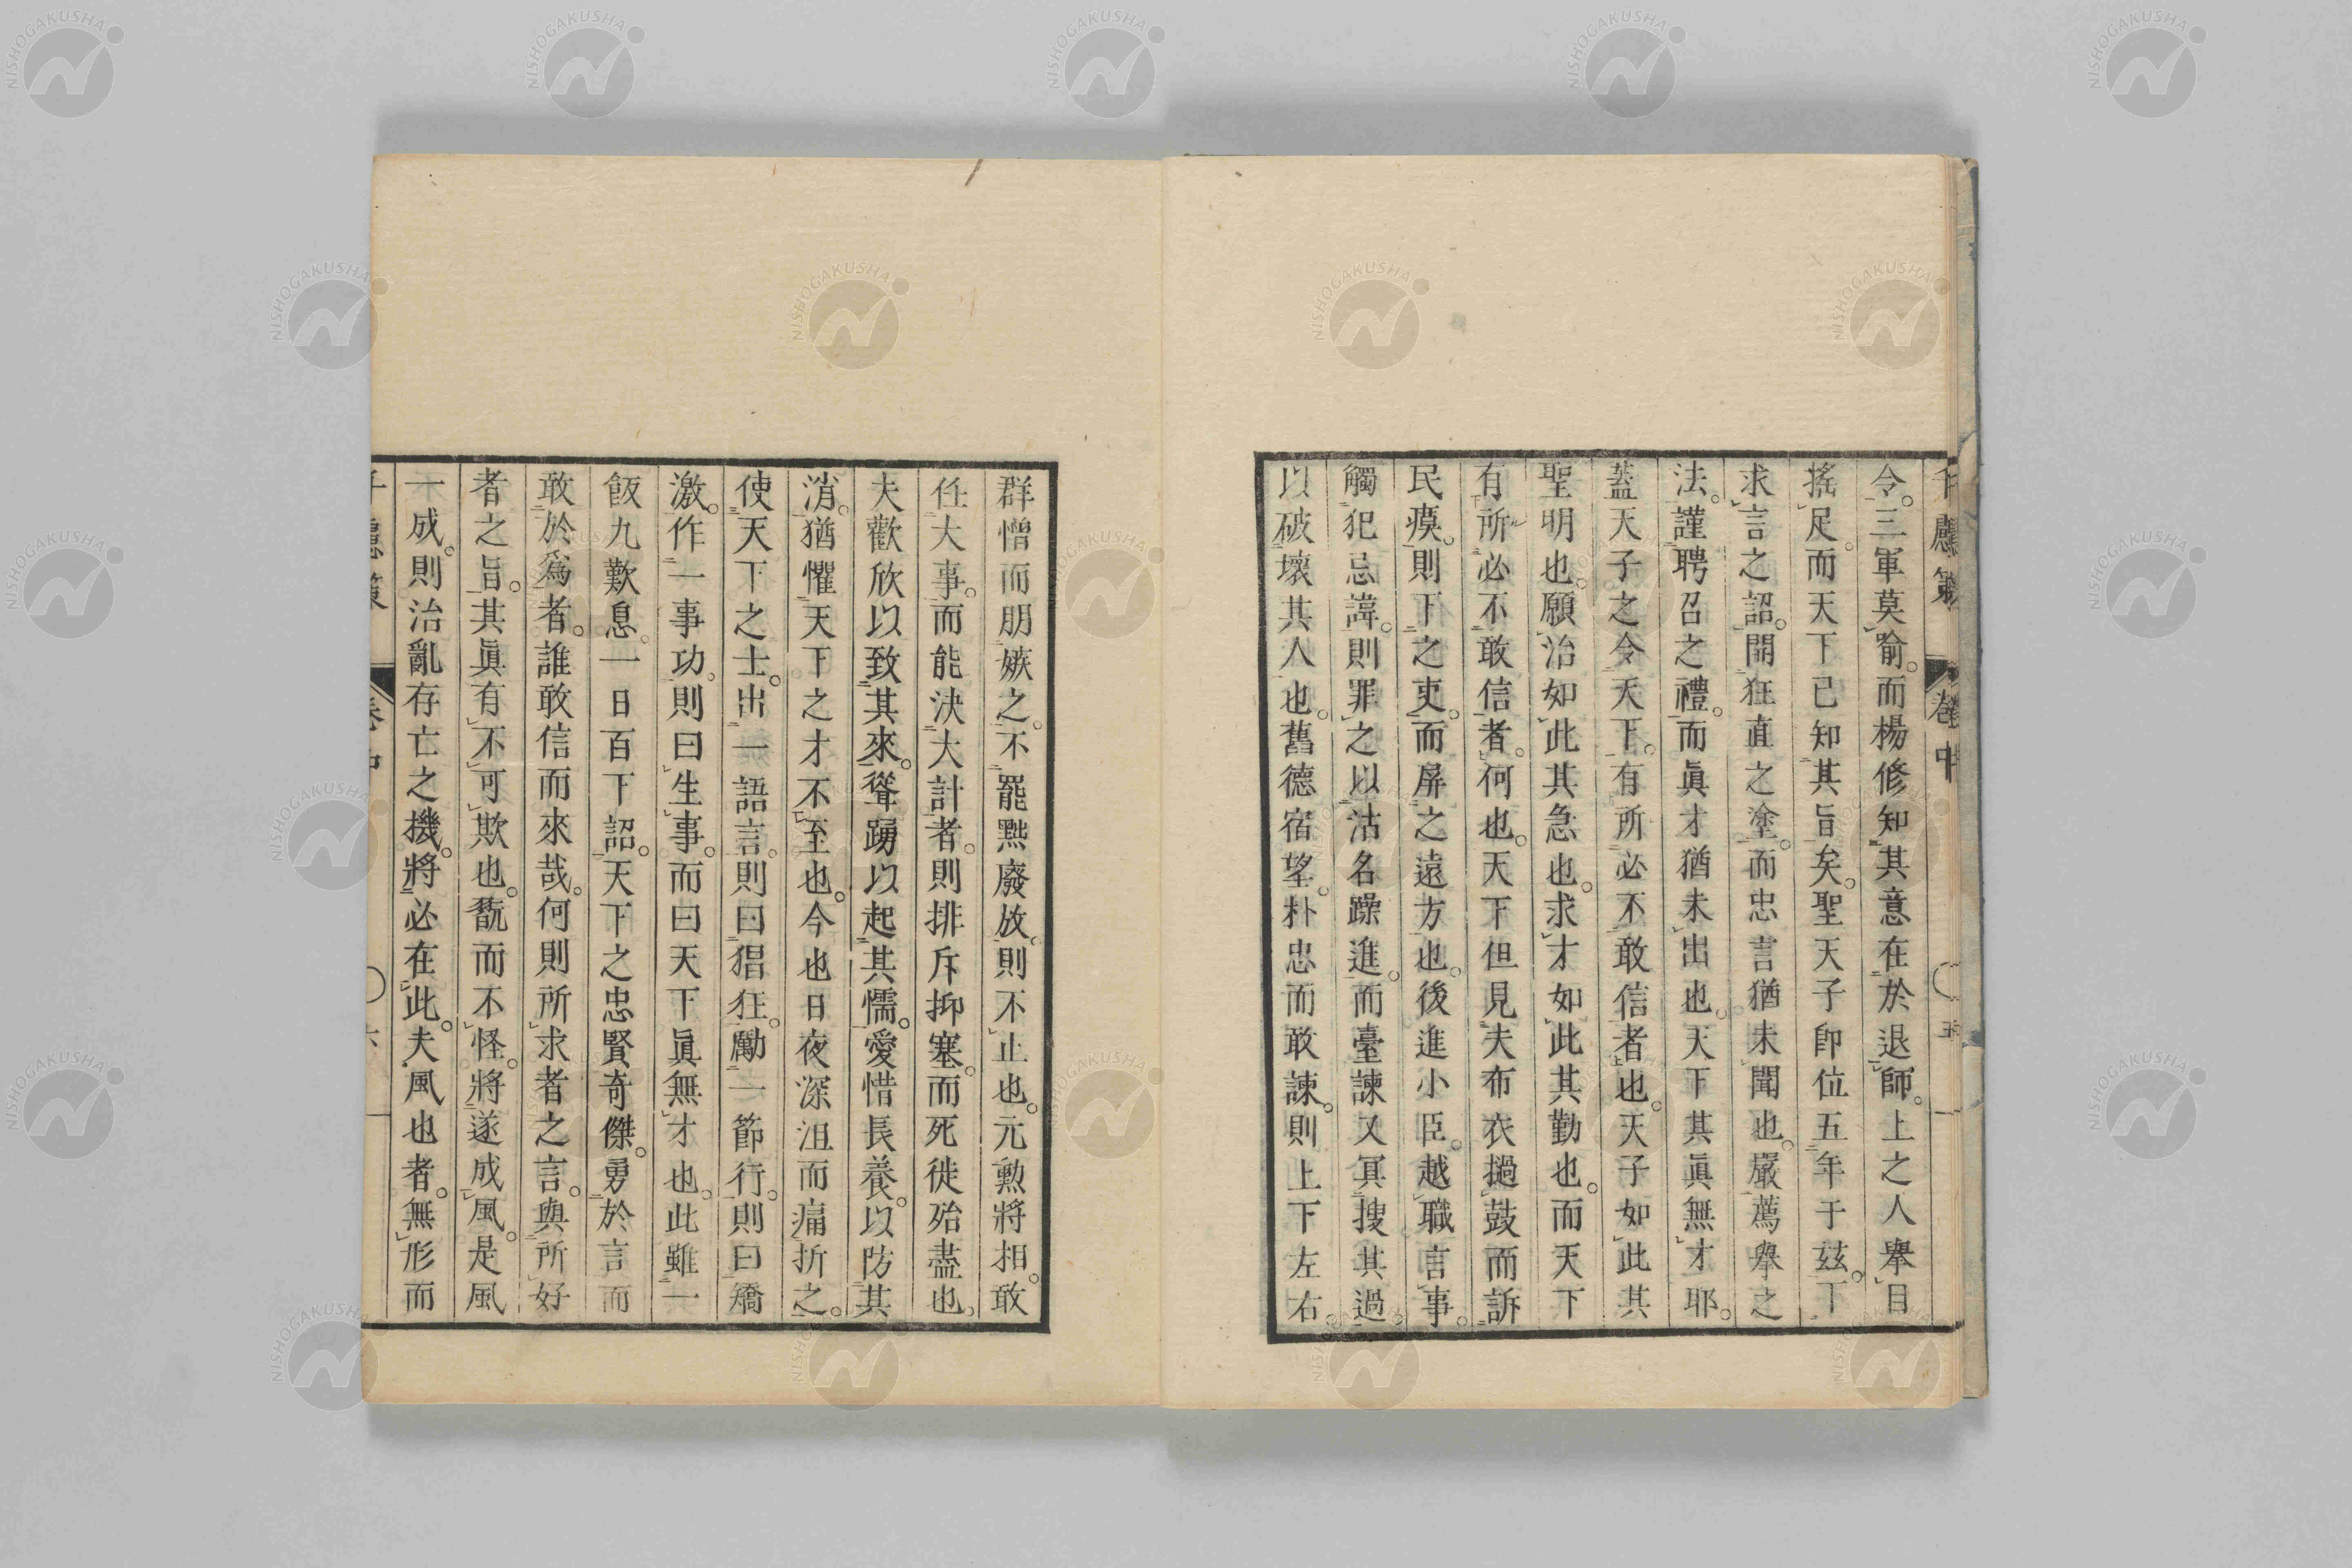 千慮策 卷中 五
令。三軍莫喻。而楊修知其意在於退師。上之人舉目
搖足。而天下已知其旨矣。聖天子卽位五年于玆。下
求言之詔。開狂直之塗。而忠言猶未聞也。嚴薦舉之
法。謹聘召之禮。而眞才猶未出也。天下其眞無才耶。
蓋天子之令天下。有所必不敢信者也。天子如此其
聖明也。願治如此其急也。求才如此其勤也。而天下
有所必不敢信者。何也。天下但見夫布衣撾鼓而訴
民瘼。則下之吏。而屏之遠方也。後進小臣。越職言事。
觸犯忌諱。則罪之以沽名躁進。而臺諫又冥搜其過
以破壞其人也。舊德宿望。朴忠而敢諫。則上下左右。
群憎而朋嫉之。不罷黜廢放。則不止也。元勲將相。敢
任大事。而能決大計者。則排斥抑塞。而死徙殆盡也。
夫歡欣以致其來。聳踴以起其懦。愛惜長養。以防其
消。猶懼天下之才不至也。今也日夜深沮而痛折之。
使天下之士。出一語言。則曰猖狂。勵一節行。則曰矯
激。作一事功。則曰生事。而曰天下眞無才也。此雖一
飯九歎息。一日百下詔。天下之忠賢奇傑。勇於言而
敢於爲者。誰敢信而來哉。何則所求者之言。與所好
者之旨。其眞有不可欺也。翫而不怪。將遂成風。是風
一成。則治亂存亡之機。將必在此。夫風也者。無形而